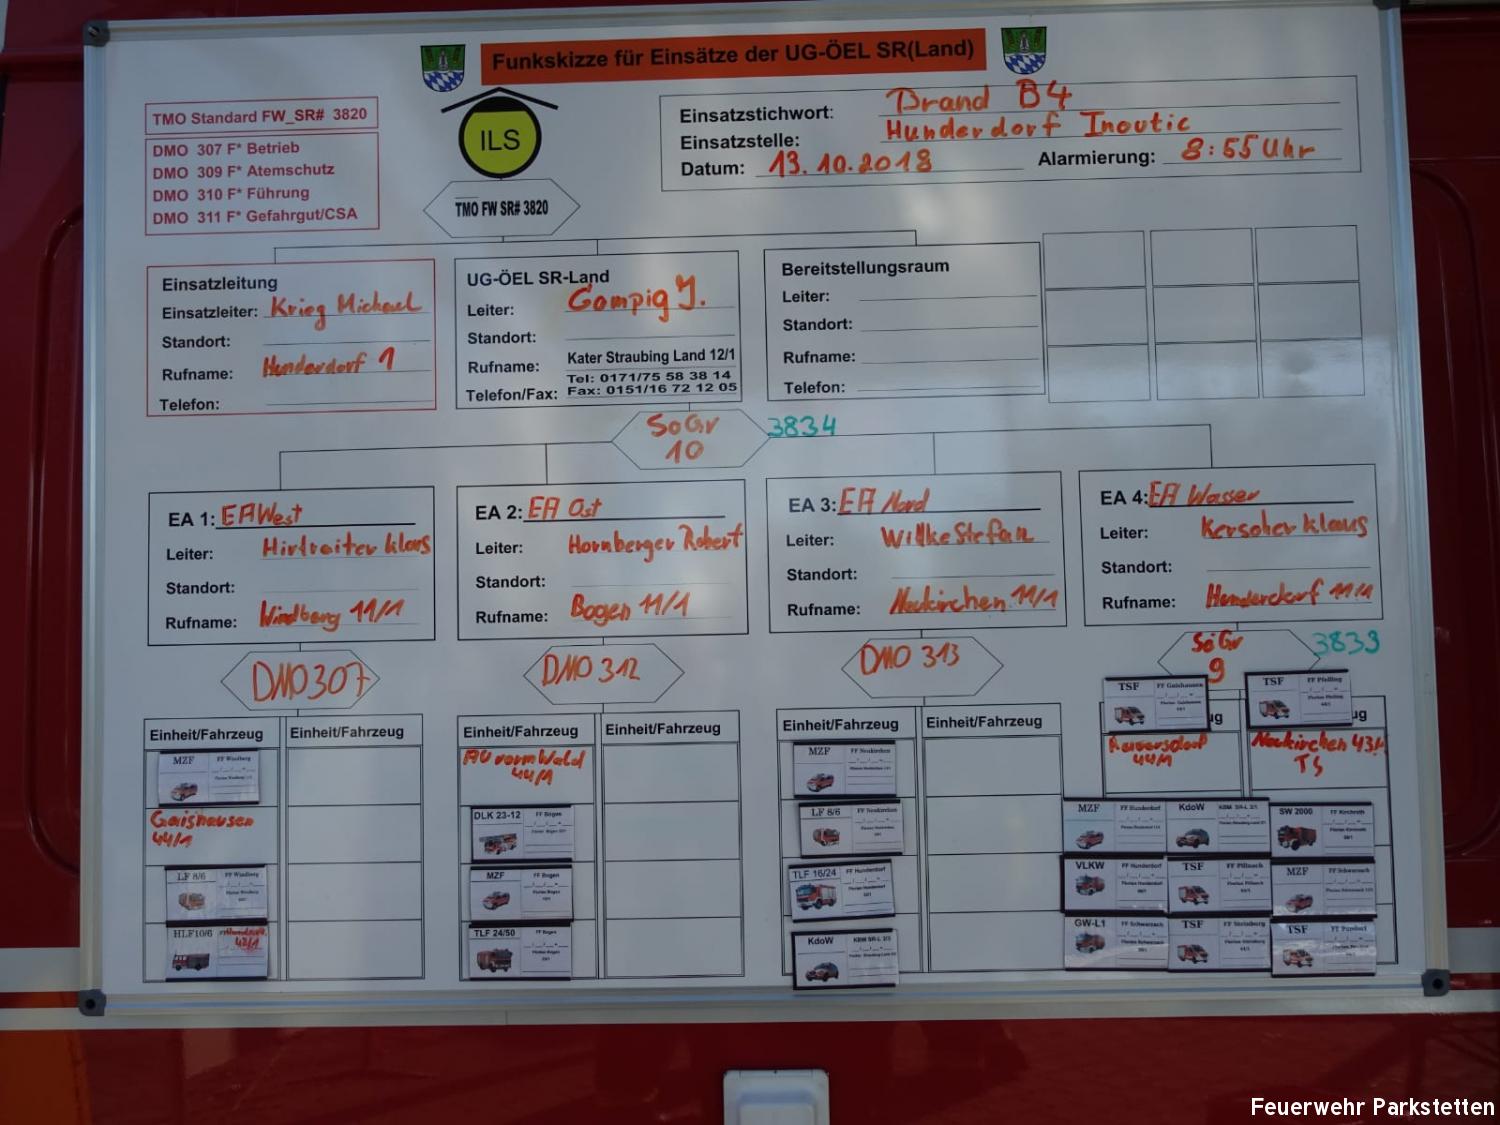 Funkskizze für Einsätze der UG-ÖEL SR(Land)
TMO Standard FW_SR# 3820
DMO 307 F* Betrieb
DMO 309 F* Atemschutz
DMO 310 F* Führung
DMO 311 F* Gefahrgut/CSA
ILS
TMO FW SR# 3820
Einsatzstichwort: Brand B4
Einsatzstelle: Hunderdorf Inoutic
Datum: 13.10.2018 Alarmierung: 8:55 Uhr
Einsatzleitung
Einsatzleiter: Krieg Michael
Standort:
Rufname: Hunderdorf 1
Telefon:
UG-ÖEL SR-Land
Leiter: Gampig J.
Standort:
Rufname: Kater Straubing Land 12/1
Telefon/Fax: Tel: 0171/75 58 38 14
Fax: 0151/16 72 12 05
Bereitstellungsraum
Leiter:
Standort:
Rufname:
Telefon:
SoGr 10
3834
EA 1: EA West
Leiter: Hirtreiter Klaus
Standort:
Rufname: Windberg 11/1
EA 2: EA Ost
Leiter: Hornberger Robert
Standort:
Rufname: Bogen 11/1
EA 3: EA Nord
Leiter: Willke Stefan
Standort:
Rufname: Neukirchen 11/1
EA 4: EA Wasser
Leiter: Kerscher Klaus
Standort:
Rufname: Hunderdorf 11/1
DMO 307
DMO 312
DMO 313
SoGr 9
3839
Einheit/Fahrzeug Einheit/Fahrzeug
MZF FF Windberg
Gaishausen 44/1
LF 8/6 FF Windberg
HLF10/6 42/1
Einheit/Fahrzeug Einheit/Fahrzeug
AU vorm Wald 44/1
DLK 23-12 FF Bogen
MZF FF Bogen
TLF 24/50 FF Bogen
Einheit/Fahrzeug Einheit/Fahrzeug
MZF FF Neukirchen
LF 8/6 FF Neukirchen
TLF 16/24 FF Hunderdorf
KdoW KBM SR-L 2/3
TSF FF Gaishausen
TSF FF Pfelling
44/1
Neukirchen 43/1
TS
MZF FF Hunderdorf
KdoW KBM SR-L 2/1
SW 2000 FF Kirchroth
VLKW FF Hunderdorf
TSF FF Pillnach
MZF FF Schwarzach
GW-L1 FF Schwarzach
TSF FF Steinburg
TSF
Feuerwehr Parkstetten